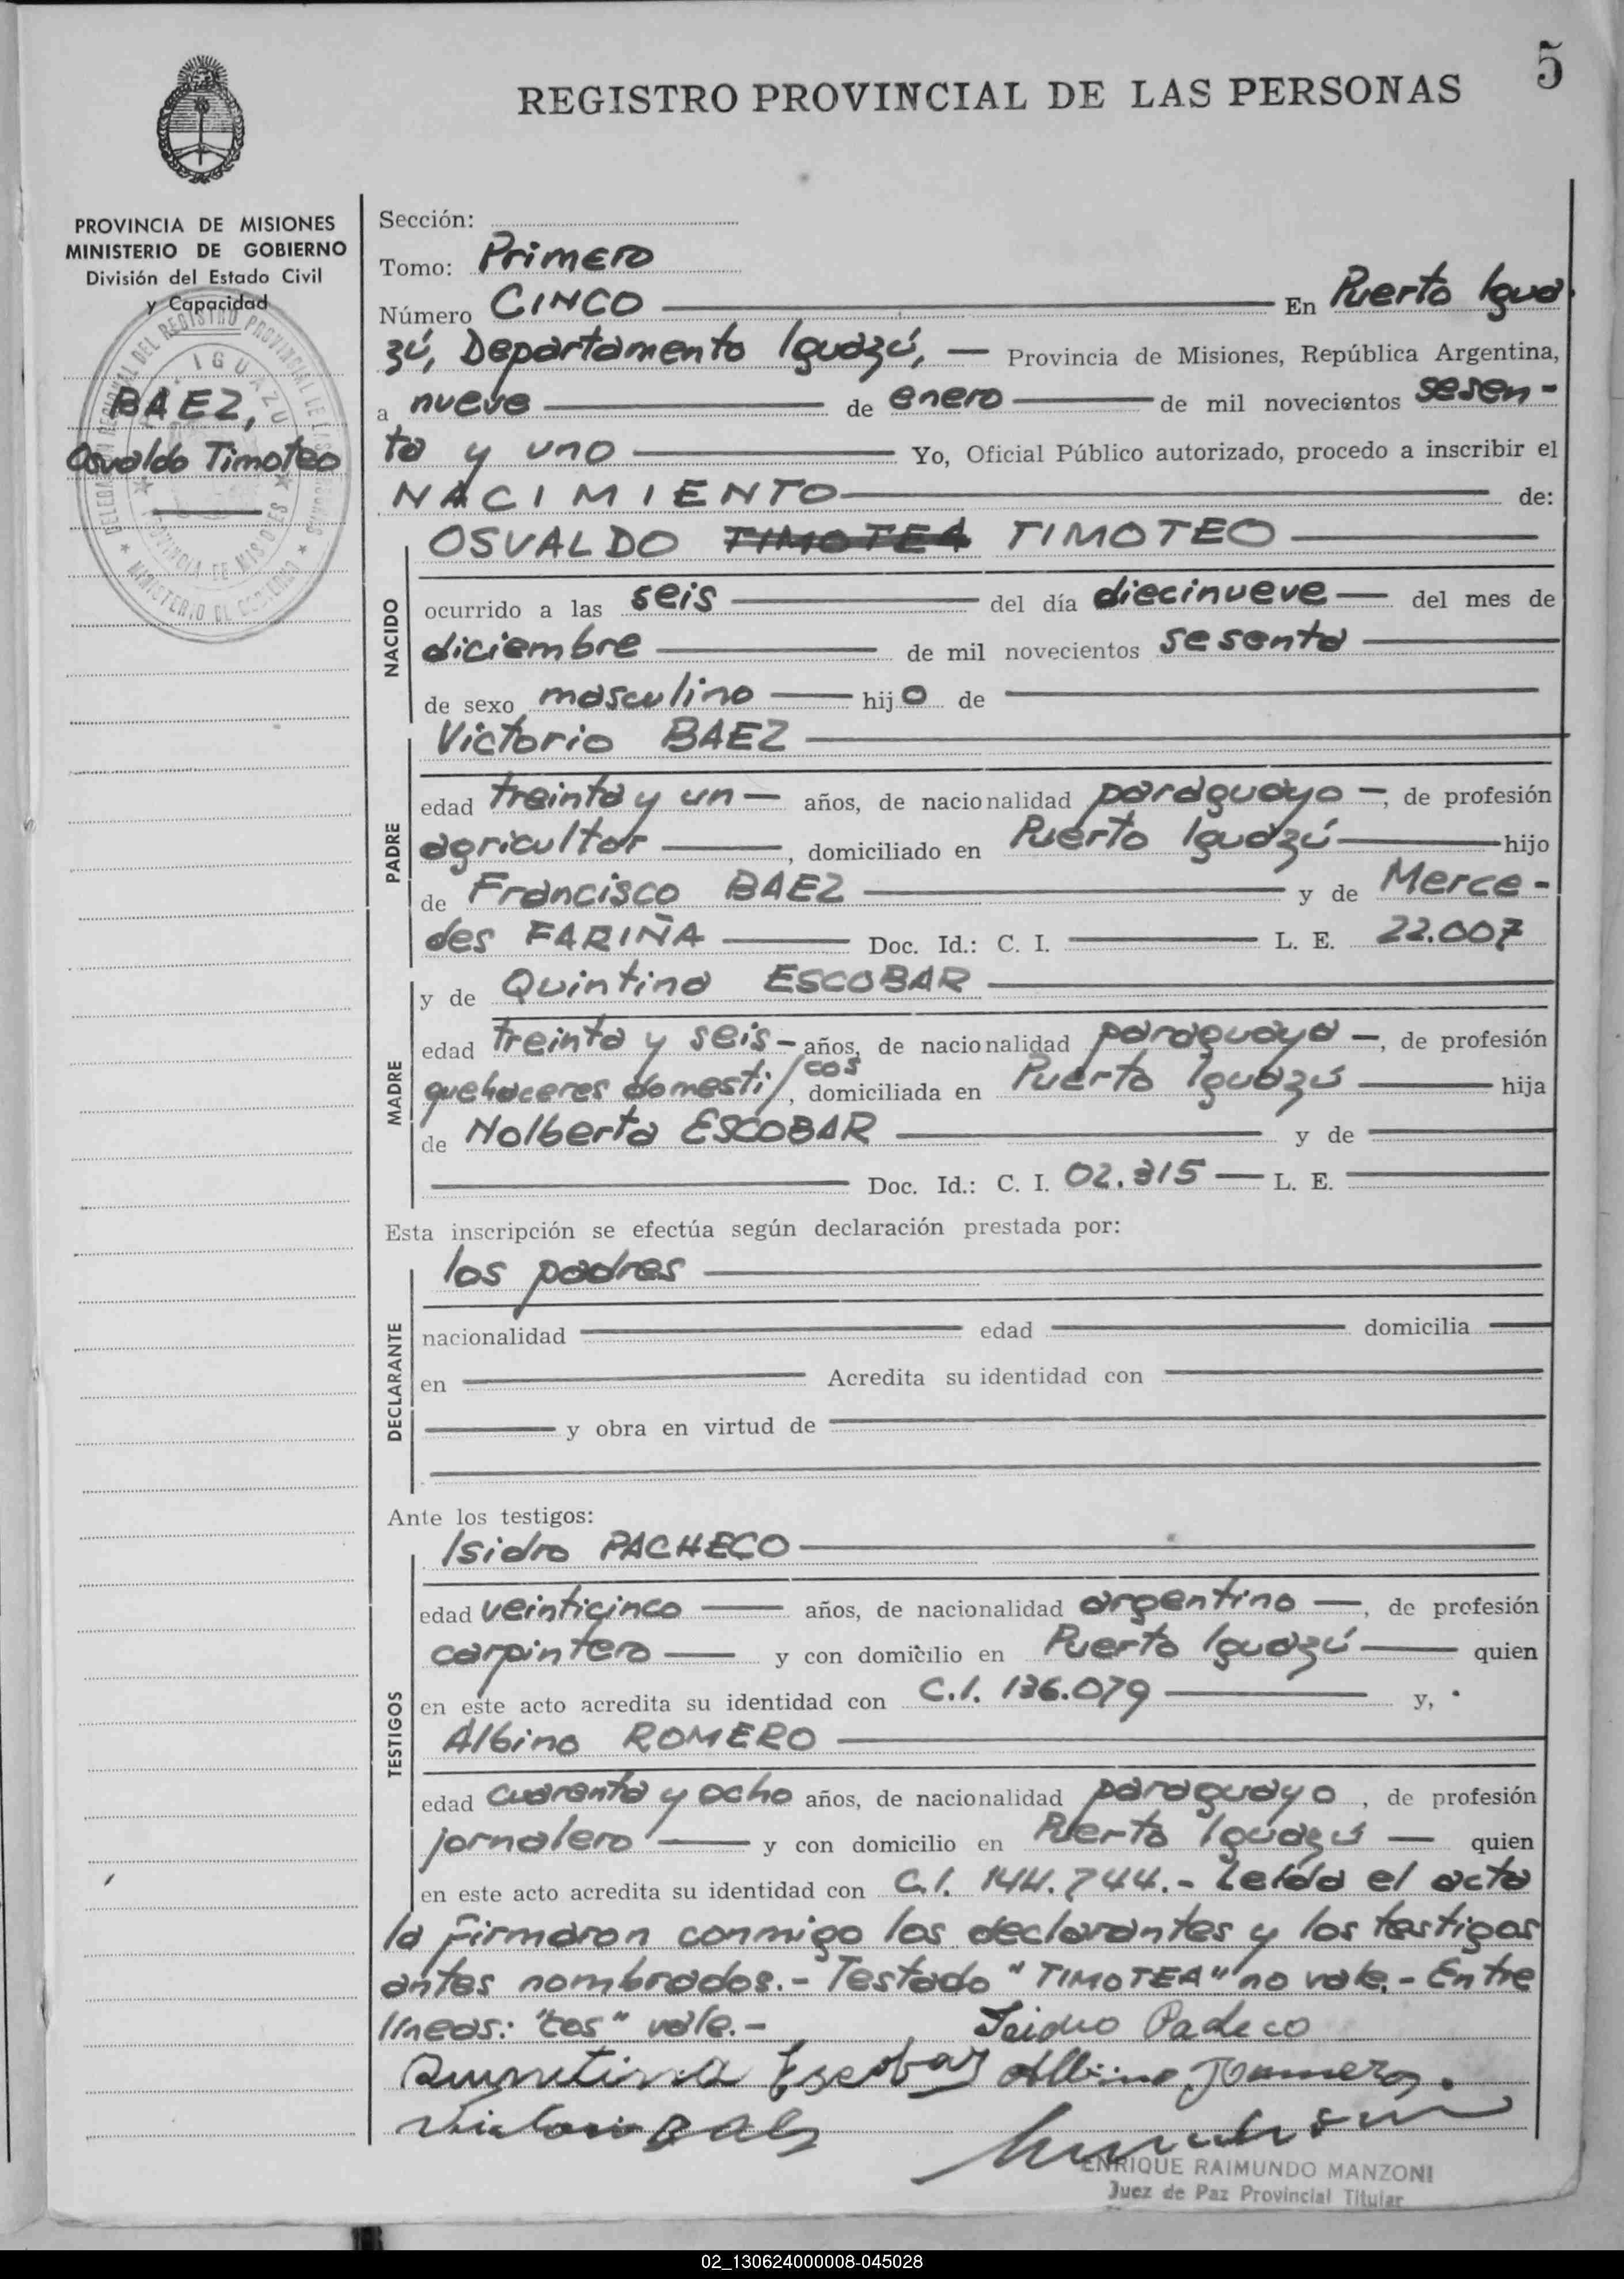 5
REGISTRO PROVINCIAL DE LAS PERSONAS
PROVINCIA DE MISIONES
MINISTERIO DE GOBIERNO
División del Estado Civil
y Capacidad
BAEZ,
Osvaldo Timoteo
Sección:
Tomo: Primero
Número CINCO En Puerto Igua
zú, Departamento Iguazú, — Provincia de Misiones, República Argentina,
a nueve de enero de mil novecientos sesen-
ta y uno Yo, Oficial Público autorizado, procedo a inscribir el
NACIMIENTO de:
NACIDO
OSVALDO TIMOTEA TIMOTEO
ocurrido a las seis del día diecinueve — del mes de
diciembre de mil novecientos sesenta
de sexo masculino — hijo de
PADRE
Victorio BAEZ
edad treinta y un — años, de nacionalidad paraguayo —, de profesión
agricultor, domiciliado en Puerto Iguazú hijo
de Francisco BAEZ y de Merce-
des FARIÑA Doc. Id.: C. I. L. E. 22.007
MADRE
y de Quintina ESCOBAR
edad treinta y seis - años, de nacionalidad paraguaya —, de profesión
quehaceres domesti/cos, domiciliada en Puerto Iguazú hija
de Nolberta ESCOBAR y de
Doc. Id.: C. I. 02.315 — L. E.
Esta inscripción se efectúa según declaración prestada por:
DECLARANTE
los padres
nacionalidad edad domicilia
en Acredita su identidad con
y obra en virtud de
Ante los testigos:
TESTIGOS
Isidro PACHECO
edad veinticinco años, de nacionalidad argentino —, de profesión
carpintero — y con domicilio en Puerto Iguazú quien
en este acto acredita su identidad con C.I. 136.079 y,
Albino ROMERO
edad cuarenta y ocho años, de nacionalidad paraguayo, de profesión
jornalero — y con domicilio en Puerto Iguazú — quien
en este acto acredita su identidad con C.I. 144.744.- Leída el acta
la firmaron conmigo los declarantes y los testigos
antes nombrados.- Testado "TIMOTEA" no vale.- Entre
líneas: "cos" vale.-
Isidro Padeco
Quintina Escobar Albino Romero.
Victorio Baez
ENRIQUE RAIMUNDO MANZONI
Juez de Paz Provincial Titular
02_130624000008-045028